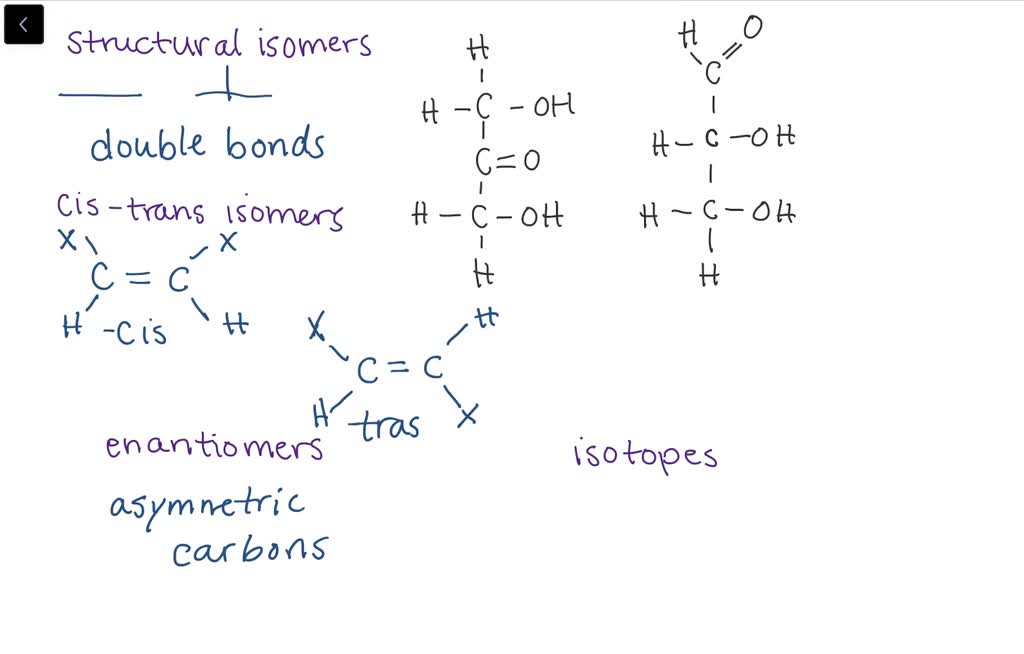 structural isomers
double bonds
cis-trans isomers
X X
C = C
H -cis H
X H
C = C
H tras X
enantiomers
asymnetric
carbons
H
H - C - OH
C = O
H - C - OH
H
H O
C
H - C - OH
H - C - OH
H
isotopes